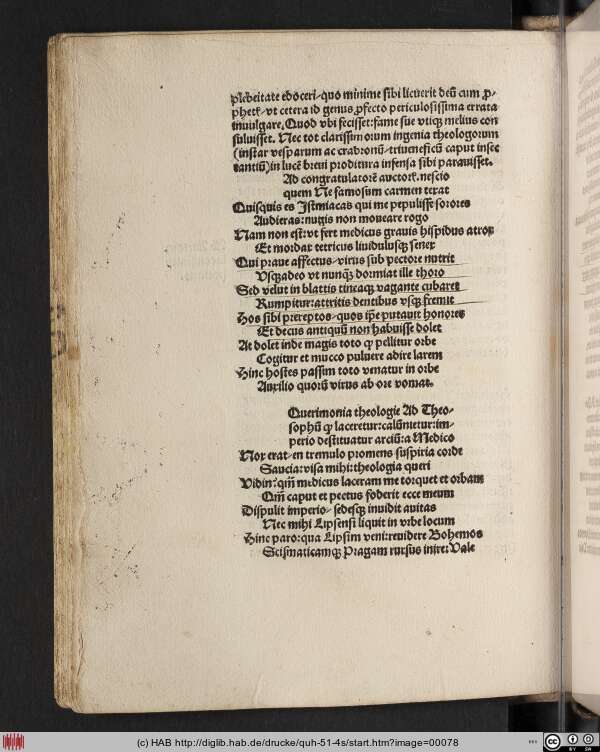 plebeitate edoceri/quo minime sibi licuerit deū cum ꝓ-
phetꝭ/vt cetera id genus ꝓfecto periculosissima errata
inuulgare. Quod vbi fecisset:fame sue vtiqꝫ melius con
suluisset. Nec tot clarissimorum ingenia theologorum
(instar vesparum ac crabronū/triueneficū caput insec
tantiū)in lucē breui proditura infensa sibi parauisset.
Ad congratulatorē auctorꝭ.nescio
quem Ne famosum carmen texat
Quisquis es Istmiacas qui me pepulisse sorores
Audieras:nugis non moueare rogo
Nam non est:vt fert medicus grauis hispidus atrox
Et mordax tetricus liuidulusqꝫ senex
Qui praue affectus/virus sub pectore nutrit
Vsqꝫadeo vt nunqꝫ dormiat ille thoro
Sed velut in blattis tineaqꝫ vagante cubaret
Rumpitur:attritis dentibus vsqꝫ fremit
Hos sibi prereptos/quos ip̄e putauit honores
Et decus antiquū non habuisse dolet
At dolet inde magis toto ꝙ pellitur orbe
Cogitur et mucco puluere adire larem
Hinc hostes passim toto venatur in orbe
Auxilio quorū virus ab ore vomat.
Querimonia theologie Ad Theo-
sophū ꝙ laceretur:calūnietur:im-
perio destituatur arciū:a Medico
Nox erat/en tremulo promens suspiria corde
Saucia:visa mihi:theologia queri
Vidin? qm̄ medicus laceram me torquet et orbam
Qm̄ caput et pectus foderit ecce meum
Dispulit imperio/sedesqꝫ inuidit auitas
Nec mihi Lipsensi liquit in vrbe locum
Hinc paro:qua Lipsim veni:reuidere Bohemos
Scismaticamqꝫ Pragam rursus inire:Vale
(c) HAB http://diglib.hab.de/drucke/quh-51-4s/start.htm?image=00078